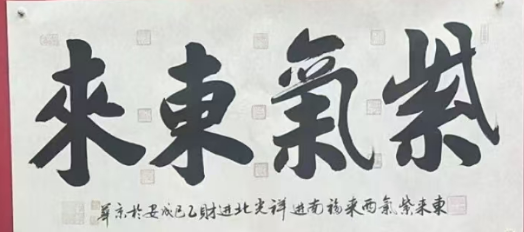 紫氣東來
東来紫氣西来福南進祥光北進財乙巳成安於京華